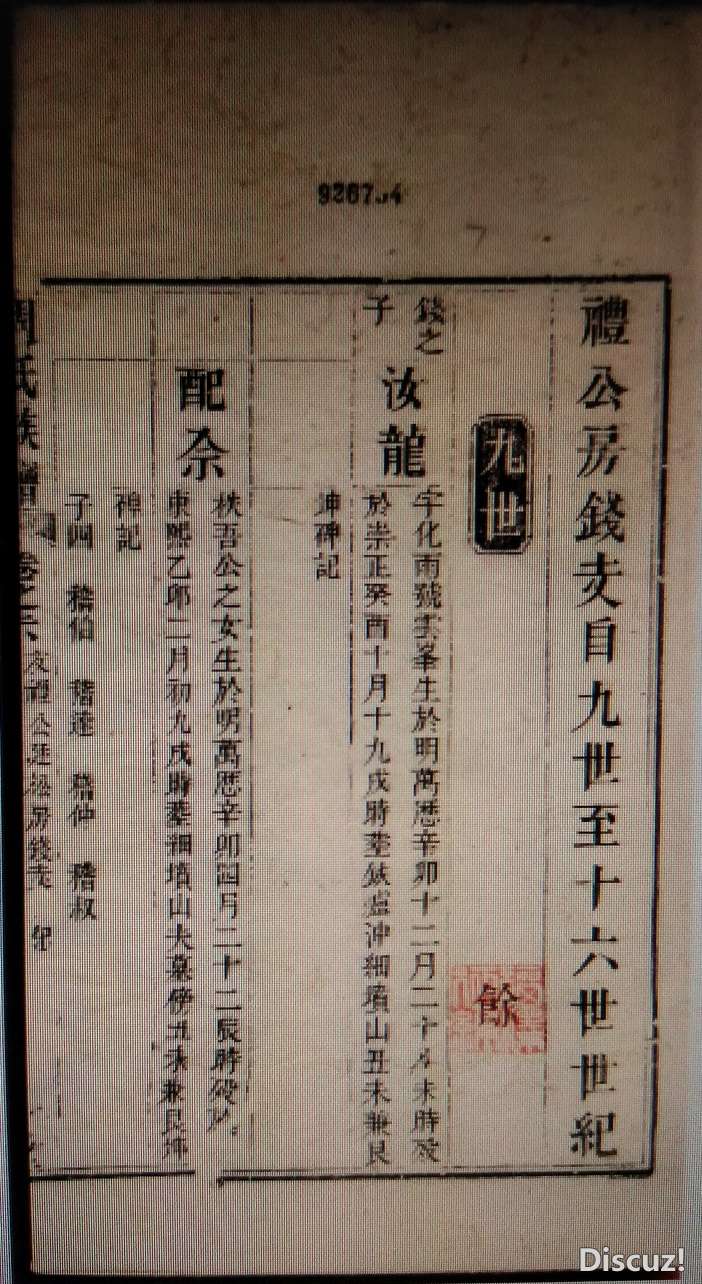 9267.4
禮公房錢支自九世至十六世世紀
九世
餘
錢之子
汝龍
字化雨號雲峯生於明萬曆辛卯十二月二十 未時歿
於崇正癸酉十月十九戌時塟 盧沖細墳山丑未兼艮
坤碑記
配佘
秩吾公之女生於明萬曆辛卯四月二十二辰時歿於
康熙乙卯二月初九戌時塟細墳山夫墓傍丑未兼艮坤
碑記
子四 稽伯 稽達 稽仲 稽叔
周氏族譜 卷之六 友禮公廷松房錢支 紀
Discuz!